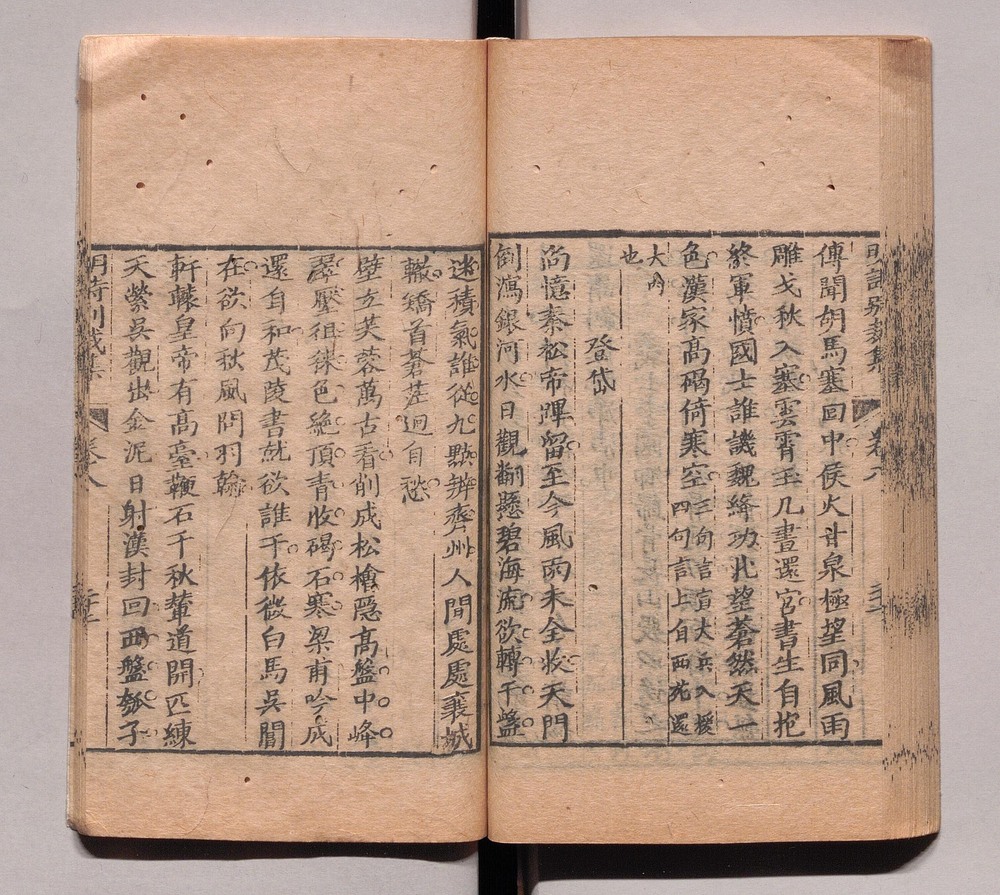 明詩別裁集
卷八
傳聞胡馬塞回中候火甘泉極望同風雨
雕戈秋入塞雲霄玉几晝還宮書生自抱
終軍憤國士誰譏魏絳功北望蒼然天一
色漢家高碣倚寒空三句言宣大兵入援
四句言上自西苑還
大內
也
登岱
尚憶秦松帝蹕留至今風雨未全收天門
倒瀉銀河水日觀翻懸碧海流欲轉千盤
迷積氣誰從九點辨齊州人間處處襄城
轍矯首蒼茫迴自愁
壁立芙蓉萬古看削成松檜隱高盤中峰
壓徂徠色絕頂青收碣石寒梁甫吟成
還自和茂陵書就欲誰干依微白馬吳閶
在欲向秋風問羽翰
軒轅皇帝有高臺鞭石千秋輦道開匹練
天縈吳觀出金泥日射漢封回西盤瓠子
明詩別裁集
卷八